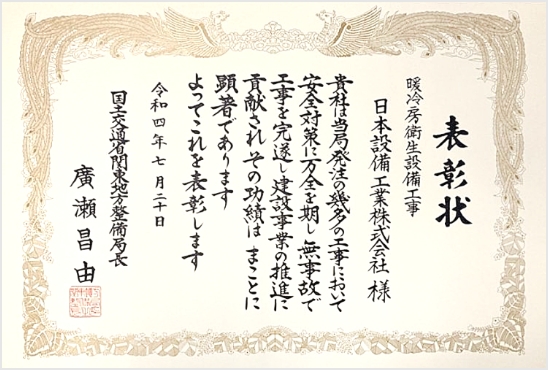 表彰状
暖冷房衛生設備工事
日本設備工業株式会社 様
貴社は当局発注の幾多の工事において
安全対策に万全を期し無事故で
工事を完遂し建設事業の推進に
貢献され その功績は まことに
顕著であります
よってこれを表彰します
令和四年七月二十日
国土交通省関東地方整備局長
廣瀬昌由